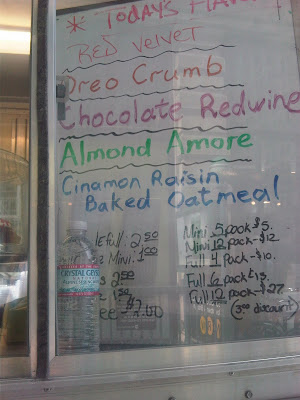 * TODAY'S
RED VELVET
Oreo Crumb
Chocolate Redwine
Almond Amore
Cinamon Raisin
Baked Oatmeal
full 2.50
Mini. 1.00
2.50
1.50
2.00
Mini 5 pack $5.
Mini 12 pack - $12
Full 4 Pack - $10.
Full 6 pack $15.
Full 12 pack - $27
(3.00 discount)
CRYSTAL GEYSER